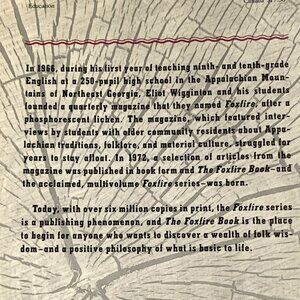 Education
In 1966, during his first year of teaching ninth- and tenth-grade
English at a 250-pupil high school in the Appalachian Moun-
tains of Northeast Georgia, Eliot Wigginton and his students
founded a quarterly magazine that they named Foxfire, after a
phosphorescent lichen. The magazine, which featured inter-
views by students with older community residents about Appa-
lachian traditions, folklore, and material culture, struggled for
years to stay afloat. In 1972, a selection of articles from the
magazine was published in book form and The Foxfire Book—and
the acclaimed, multivolume Foxfire series—was born.
Today, with over six million copies in print, the Foxfire series
is a publishing phenomenon, and The Foxfire Book is the place
to begin for anyone who wants to discover a wealth of folk wis-
dom—and a positive philosophy of what is basic to life.